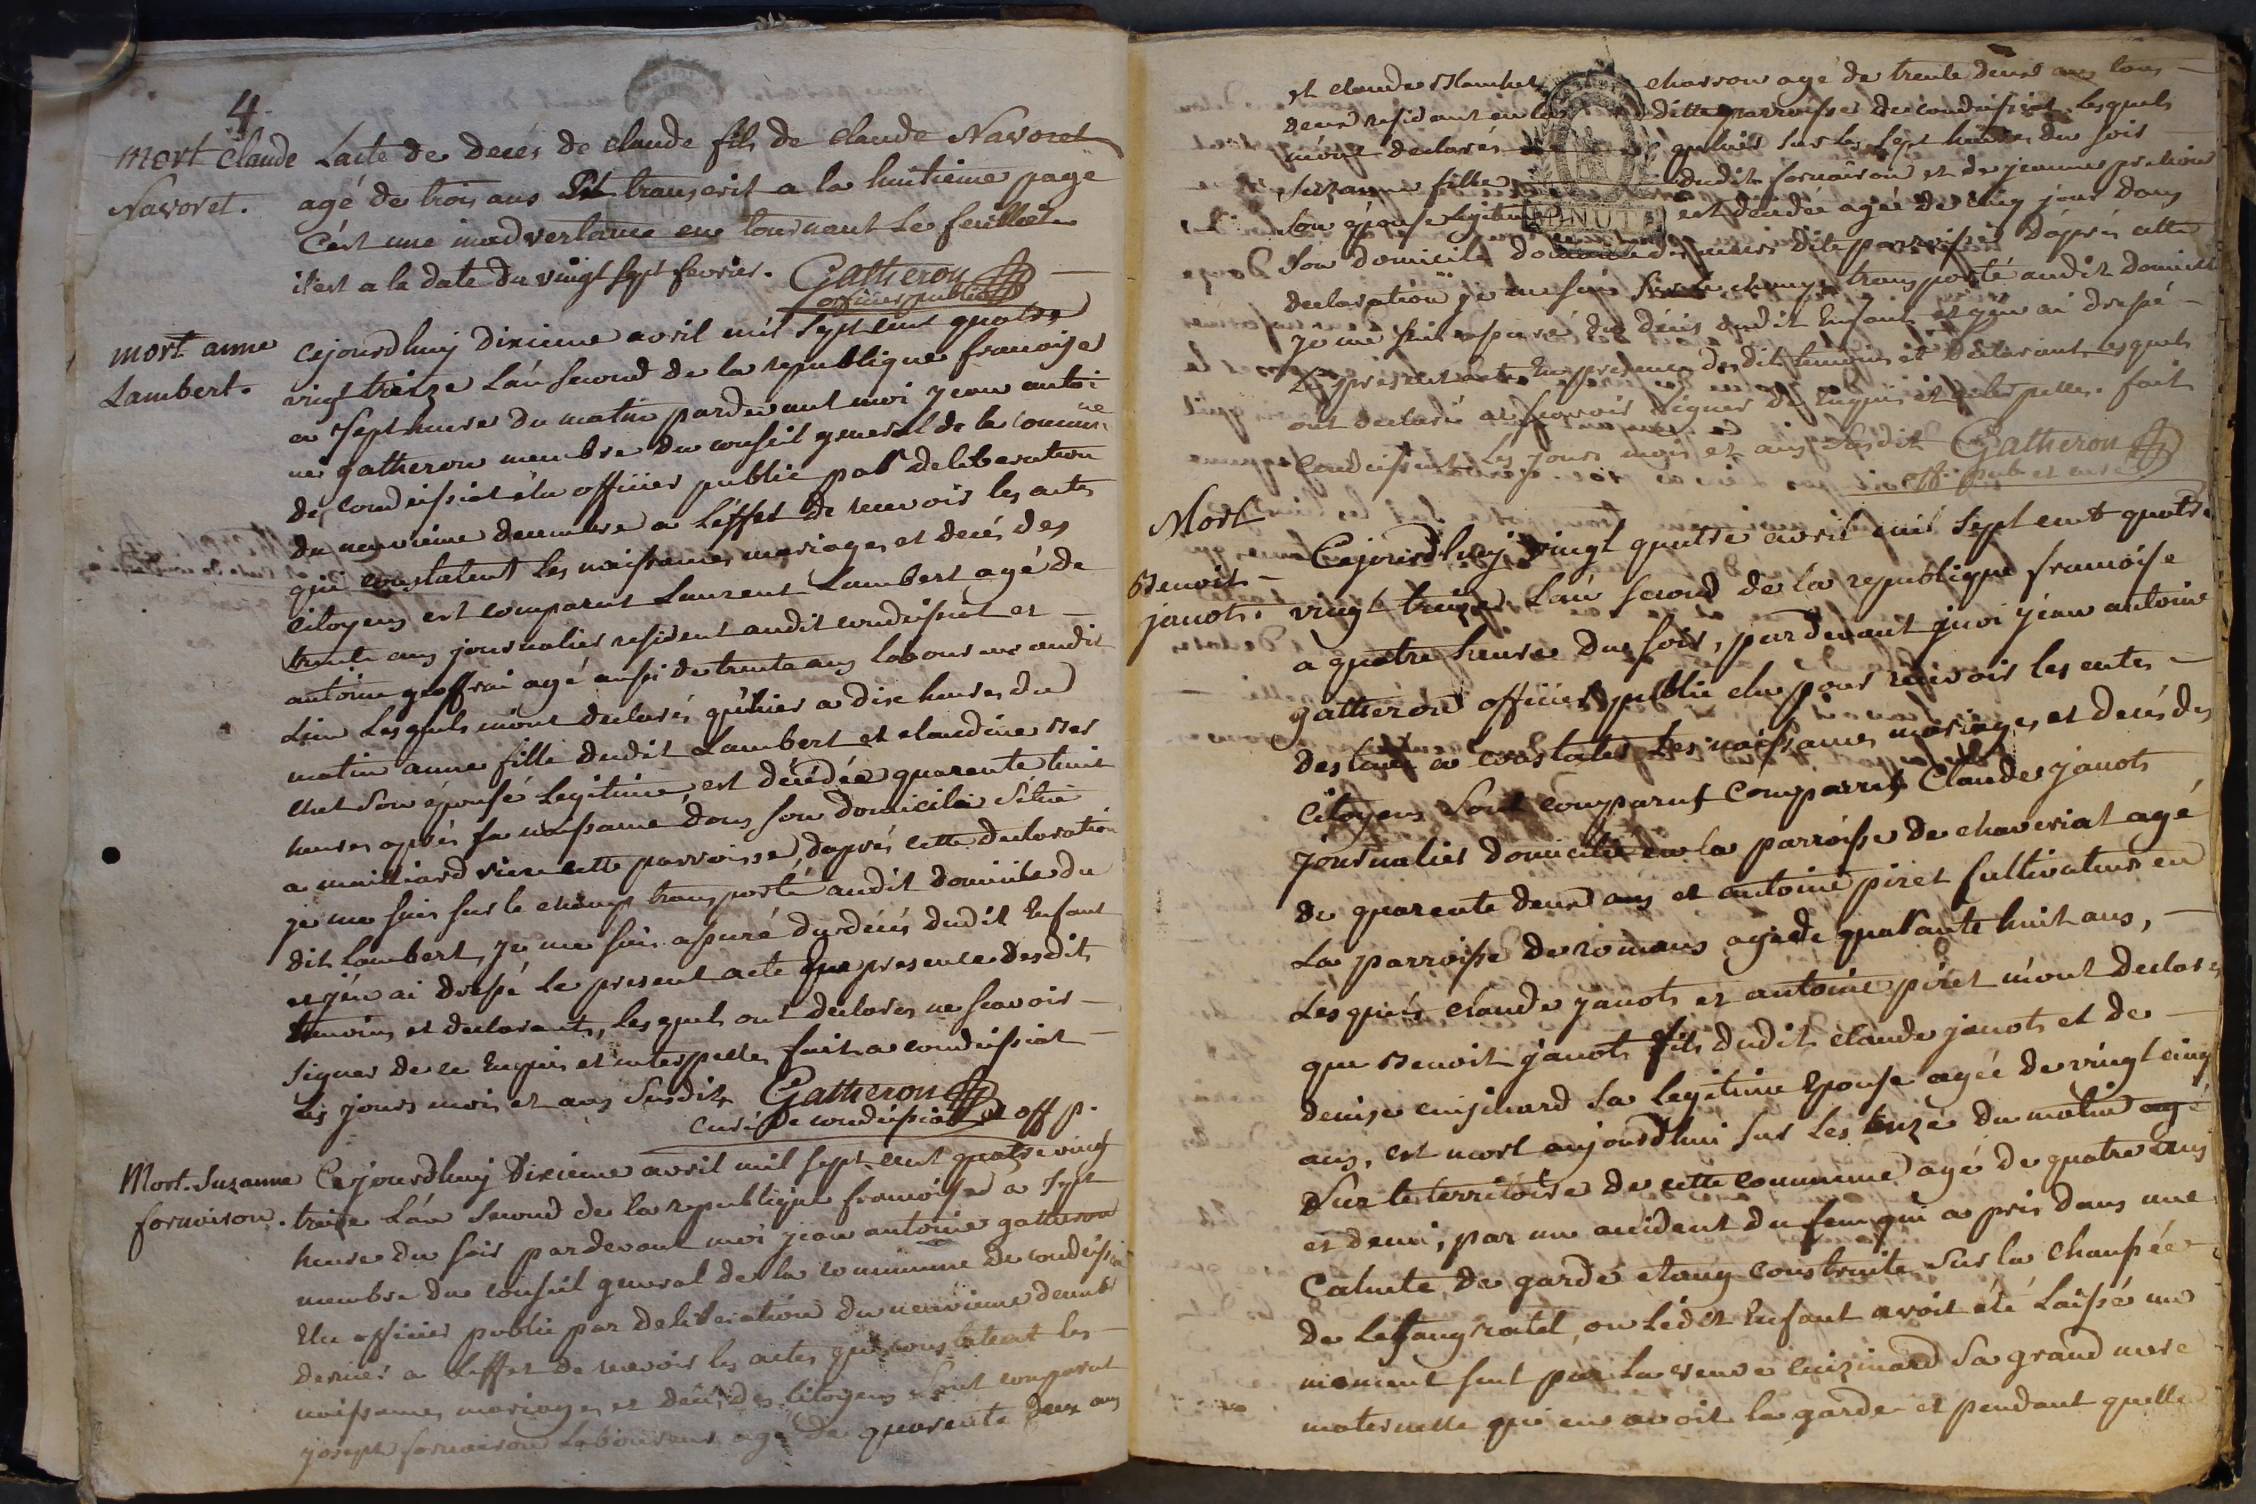 4
mort Claude
Navoret.
Lacte de decés de claude fils de claude Navoret
agé de trois ans Est transcrit a la huitieme page
C'est une inadvertance en tournant le feuillet
il est a la date du vingt sept fevrier. Gatheron
officier public
mort anne
Lambert.
Cejourdhuy dixieme avril mil sept cent quatre
vingt treize L'án second de la republique francoise
a sept heures du matin pardevant moi jean antoi
ne gatheron membre du conseil general de la commune
de condeissiat élu officier public par deliberation
du neuvieme decembre a l'effet de recevoir les actes
qui constatent les naissances, mariages et decés des
citoyens est comparut Laurent Lambert agé de
trente ans journalier resident audit condeissiat et
antoine geoffrai agé aussi de trente ans laboureur audit
Lieu Lesquels m'ont declarés qu'hier a dix heures du
matin anne fille dudit Lambert et claudine
chet son épouse legitime, est décédée quarente huit
heures aprés sa naissance dans son domicile situé
a mailliard riere cette parroisse, daprés cette declaration
je me suis sur le champ transporté audit domicile du
dit Lambert, je me suis assuré du décés dudit Enfant
et j'en ai dressé le present acte En presence desdits
temoins et declarants, lesquels ont declarés ne scavoir
signer de ce Enquis et interpellés fait a condeissiat
Les jours mois et ans susdits Gatheron
curé de condeissiat et off p.
Mort Suzanne
fornoison.
Cejourdhuy Dixieme avril mil sept cent quatre vingt
treize L'án second de la republique francoise a sept
heures du soir pardevant moi jean antoine gatheron
membre du conseil general de la commune de condeissiat
Elu officier public par deliberation du neuvieme decembre
dernier a l'effet de recevoir les actes qui constatent les
naissances, mariages et décés des citoyens sont comparut
joseph fornoison Laboureur agé de quarente deux ans
et claude charron agé de trente deux ans tous
deux residant en la ditte parroisse de condeissiat Lesquels
m'ont declarés qu'hier sur les sept heures du soir
Suzanne fille dudit fornoison et de jeanne
son épouse legitime est décédée agée de cinq jours dans
son domicile dite parroisse D'aprés cette
declaration je me suis sur le champ transporté audit domicile
je me suis assuré du décés dudit Enfant et j'en ai dressé
Le present acte En presence desdits temoins et declarants lesquels
ont declaré ne scavoir signer de Enquis et interpellés. fait
condeissiat Les jours mois et ans susdit Gatheron
off. pub et curé
MINUTE
Mort
Benoit
janot.
Cejourdhuy vingt quatre avril mil sept cent quatre
vingt treize L'án second de la republique francoise
a quatre heures du soir, pardevant moi jean antoine
gatheron officier public elu pour recevoir les actes
destinés a constater les naissances, mariages et decés des
citoyens sont comparut comparut Claude janot
journalier domicilié en la parroisse de chaveriat agé
de quarente deux ans et antoine piret cultivateur en
La parroisse de romans agé de quarante huit ans,
Lesquels claude janot et antoine piret m'ont declarés
que Benoit janot fils dudit claude janot et de
denise cuizinard sa legitime Epouse agée de vingt cinq
ans, est mort aujourdhui sur les onze du matin agé
Sur le territoire de cette commune agé de quatre ans
et demi, par un accident du feu qui a pris dans une
Cahute de garde etang construite sur la Chaussée
de Letang ratel, ou Ledit Enfant avoit été Laissé un
moment seul par La veuve cuizinard Sa grand mere
maternelle qui en avoit la garde et pendant quelle